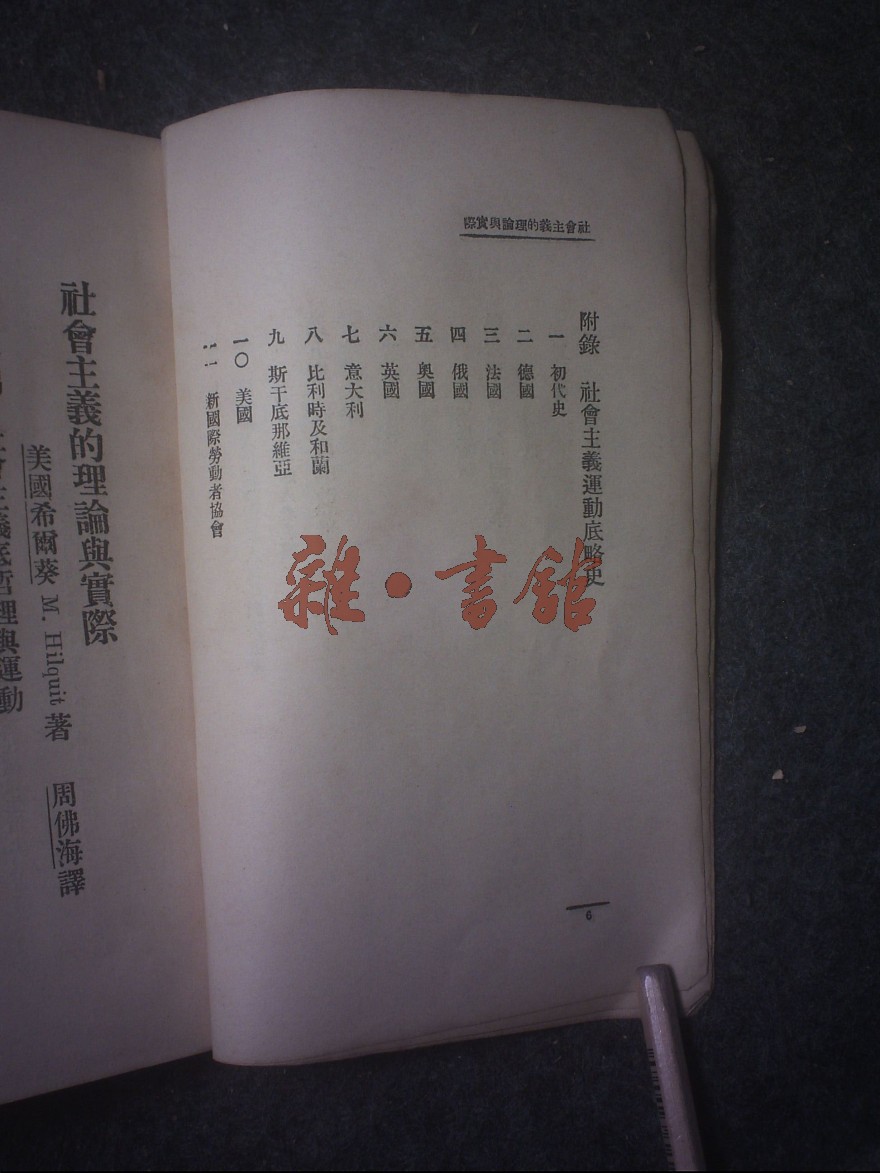 社會主義的理論與實際
附錄　社會主義運動底略史
一　初代史
二　德國
三　法國
四　俄國
五　奧國
六　英國
七　意大利
八　比利時及和蘭
九　斯干底那維亞
一〇　美國
一一　新國際勞動者協會
6
雜·書館
社會主義的理論與實際
美國希爾葵 M. Hilquit 著　周佛海譯
社會主義底哲理與運動